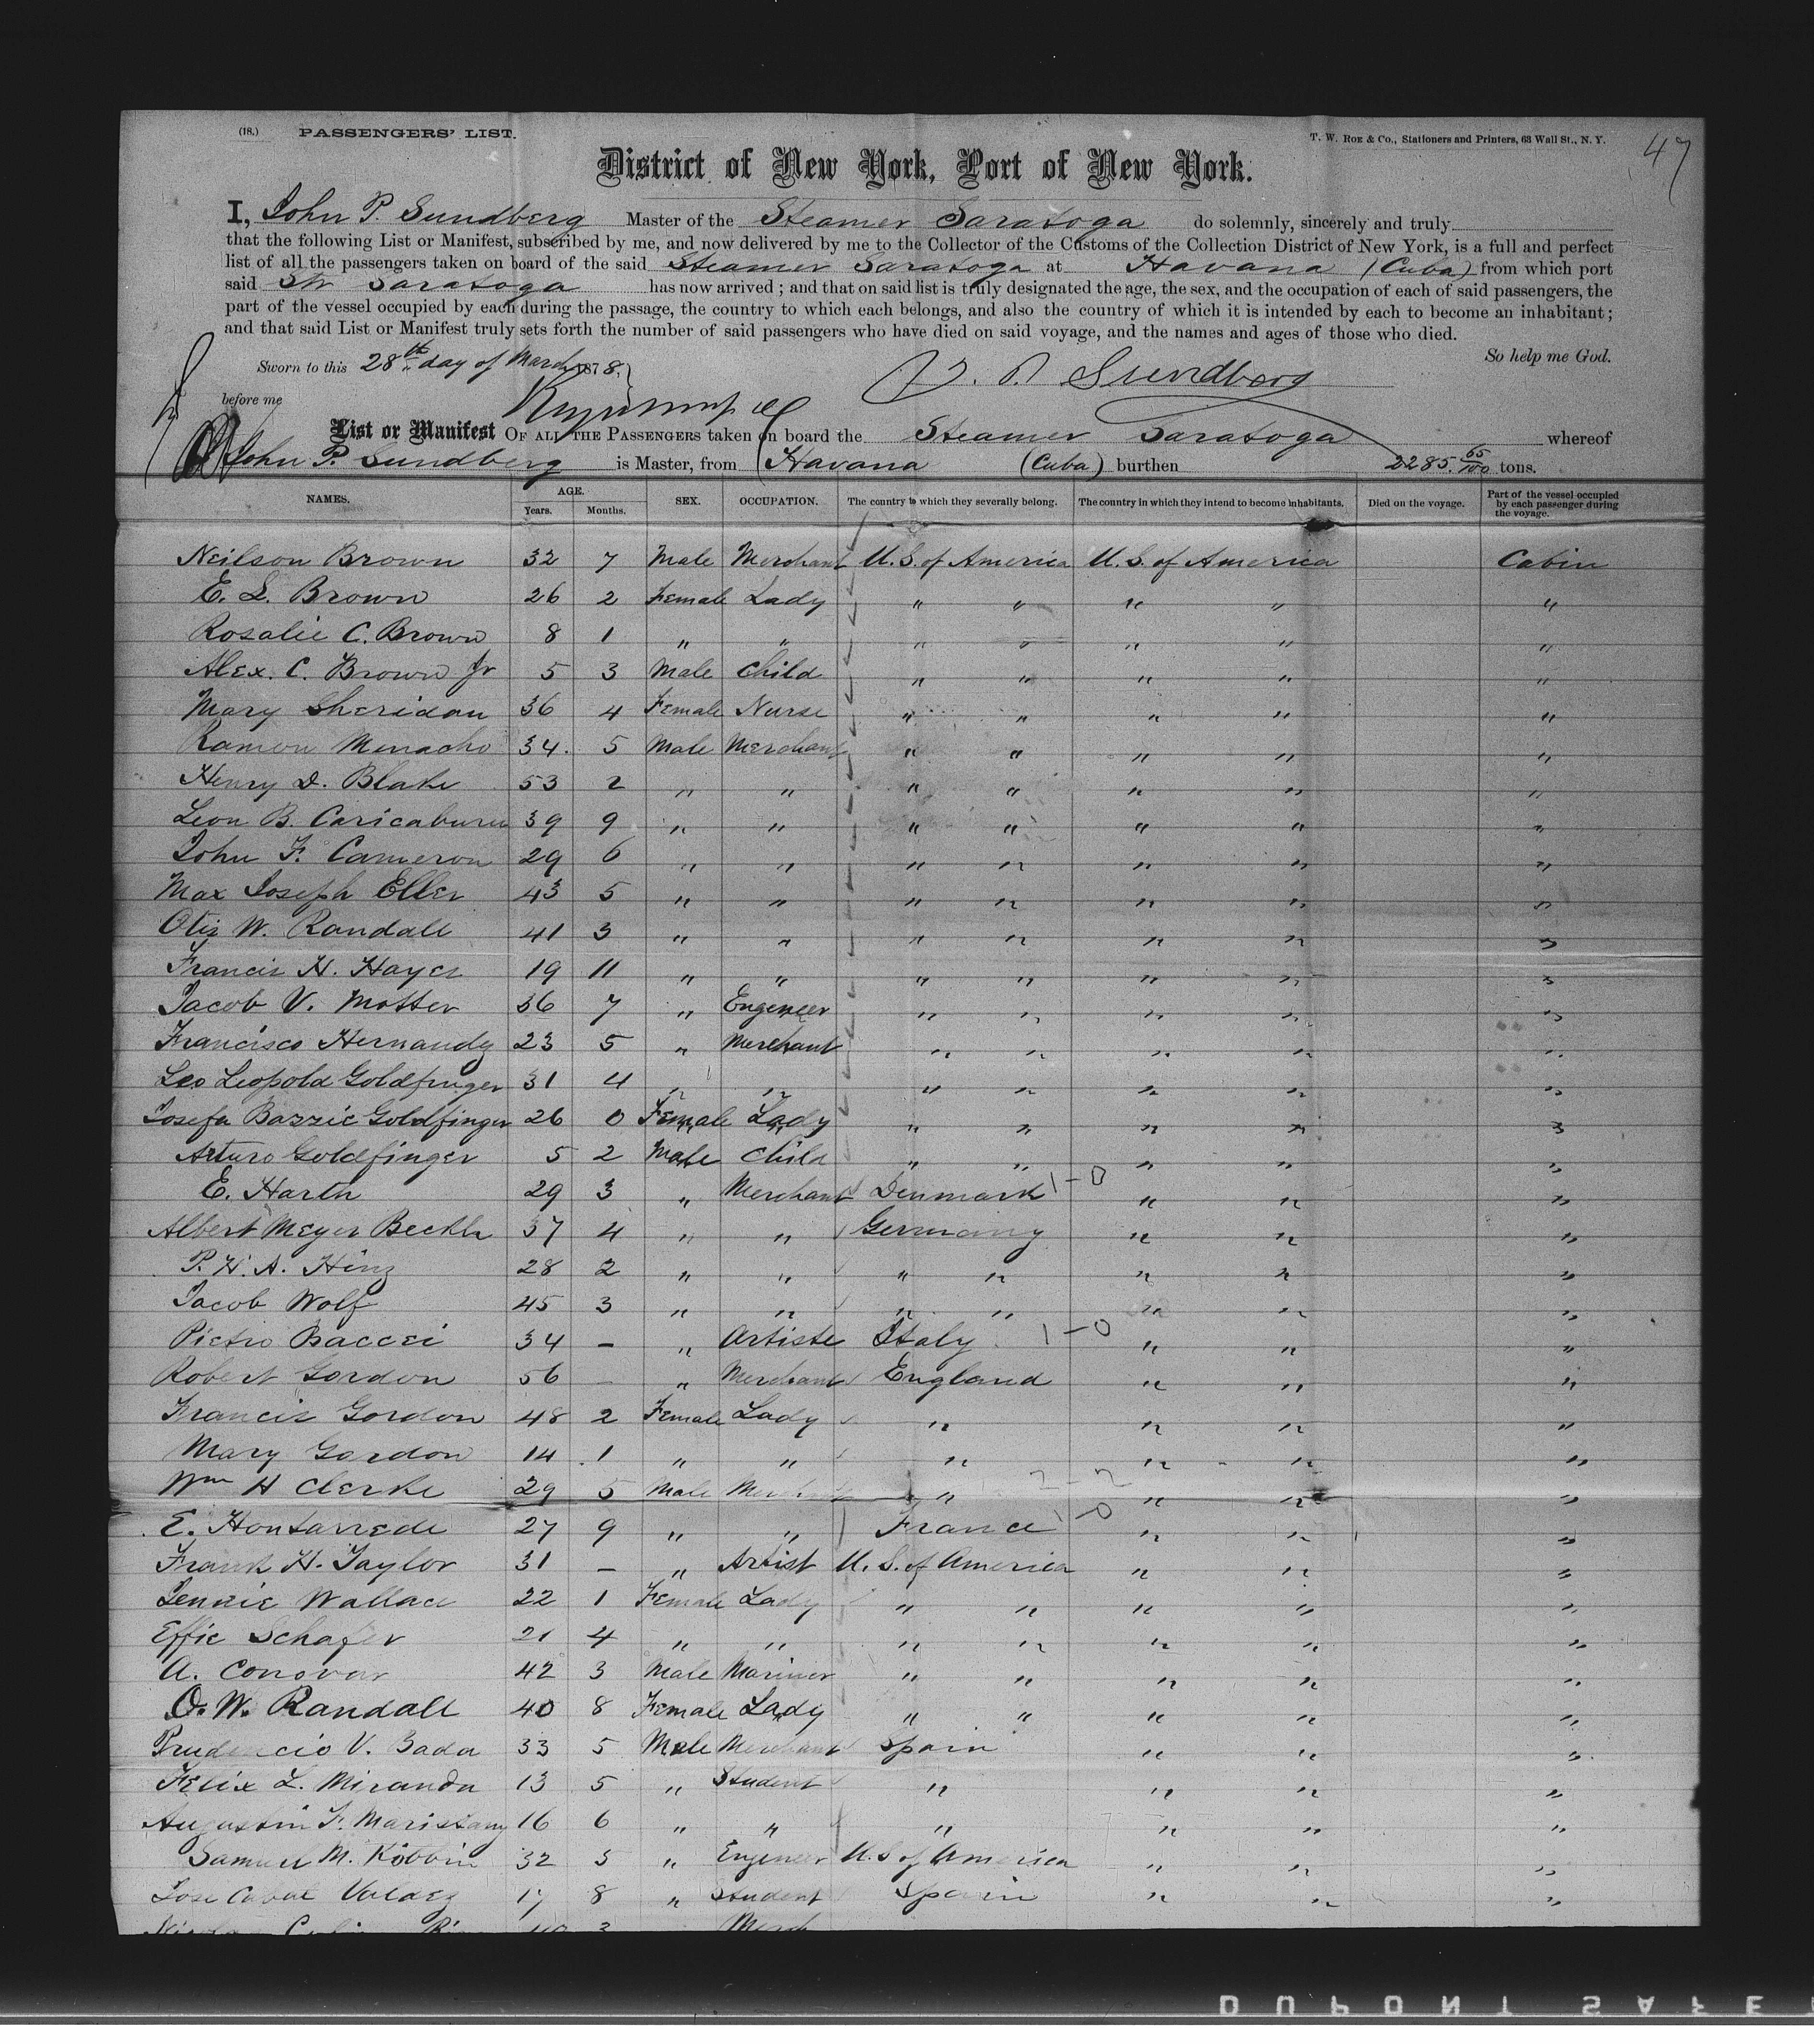 (18.) PASSENGERS' LIST. T. W. Roe & Co., Stationers and Printers, 63 Wall St., N. Y. 47
District of New York, Port of New York.
I, John P. Sundberg Master of the Steamer Saratoga do solemnly, sincerely and truly
that the following List or Manifest, subscribed by me, and now delivered by me to the Collector of the Customs of the Collection District of New York, is a full and perfect
list of all the passengers taken on board of the said Steamer Saratoga at Havana (Cuba) from which port
said Str Saratoga has now arrived; and that on said list is truly designated the age, the sex, and the occupation of each of said passengers, the
part of the vessel occupied by each during the passage, the country to which each belongs, and also the country of which it is intended by each to become an inhabitant;
and that said List or Manifest truly sets forth the number of said passengers who have died on said voyage, and the names and ages of those who died.
So help me God.
Sworn to this 28th day of March 1878,
J. P. Sundberg
before me
List or Manifest Of all the Passengers taken on board the Steamer Saratoga whereof
John P. Sundberg is Master, from Havana (Cuba) burthen 2285. 65/100 tons.
NAMES. AGE. Years. Months. SEX. OCCUPATION. The country to which they severally belong. The country in which they intend to become inhabitants. Died on the voyage. Part of the vessel occupied by each passenger during the voyage.
Neilson Brown 32 7 Male Merchant U.S. of America U.S. of America Cabin
E. L. Brown 26 2 Female Lady " " " " "
Rosalie C. Brown 8 1 " " " " " " "
Alex. C. Brown Jr 5 3 Male Child " " " " "
Mary Sheridan 36 4 Female Nurse " " " " "
Ramon Menacho 34. 5 Male Merchant " " " " "
Henry D. Blake 53 2 " " " " " " "
Leon B. Caricaburu 39 9 " " " " " " "
John F. Cameron 29 6 " " " " " " "
Max Joseph Eller 43 5 " " " " " " "
Otis W. Randall 41 3 " " " " " " "
Francis H. Hayes 19 11 " " " " " " "
Jacob V. Motter 36 7 " Engeneer " " " " "
Francisco Hernandez 23 5 " Merchant " " " " "
Leo Leopold Goldfinger 31 4 " " " " " " "
Josefa Bazzie Goldfinger 26 0 Female Lady " " " " "
Arturo Goldfinger 5 2 Male Child " " " " "
E. Harth 29 3 " Merchant Denmark 1-0 " " "
Albert Meyer Beckh 37 4 " " Germany " " "
P. H. A. Hinz 28 2 " " " " " " "
Jacob Wolf 45 3 " " " " " " "
Pietro Baccei 34 – " Artiste Italy 1-0 " " "
Robert Gordon 56 – " Merchant England " " "
Francis Gordon 48 2 Female Lady " " " "
Mary Gordon 14 1 " " " " " "
Wm H Clerke 29 5 Male Merchant " 2-2 " " "
E. Hontarrede 27 9 " " France 1-0 " " "
Frank H. Taylor 31 – " Artist U.S. of America " " "
Jennie Wallace 22 1 Female Lady " " " " "
Effie Schafer 21 4 " " " " " " "
A. Conover 42 3 Male Mariner " " " " "
O. W. Randall 40 8 Female Lady " " " " "
Prudencio V. Bada 33 5 Male Merchant Spain " " "
Felix L. Miranda 13 5 " Student " " " "
Augustin F. Maristany 16 6 " " " " " "
Samuel M. Robbin 32 3 " Engeneer U.S of America " " "
Jose Cabat Valdez 17 8 " Student Spain " " "
DUPONT SAFE